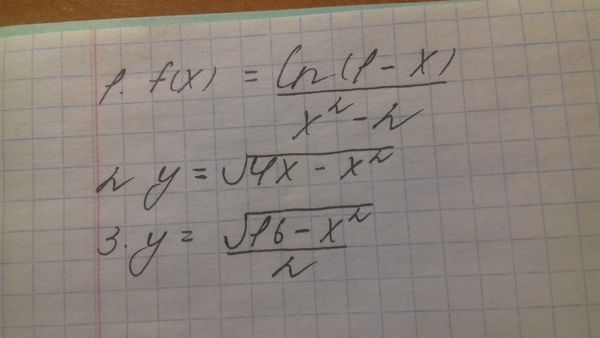 1. f(x) = ln(1-x) / x²-2
2 y = √4x - x²
3. y = √16-x² / 2